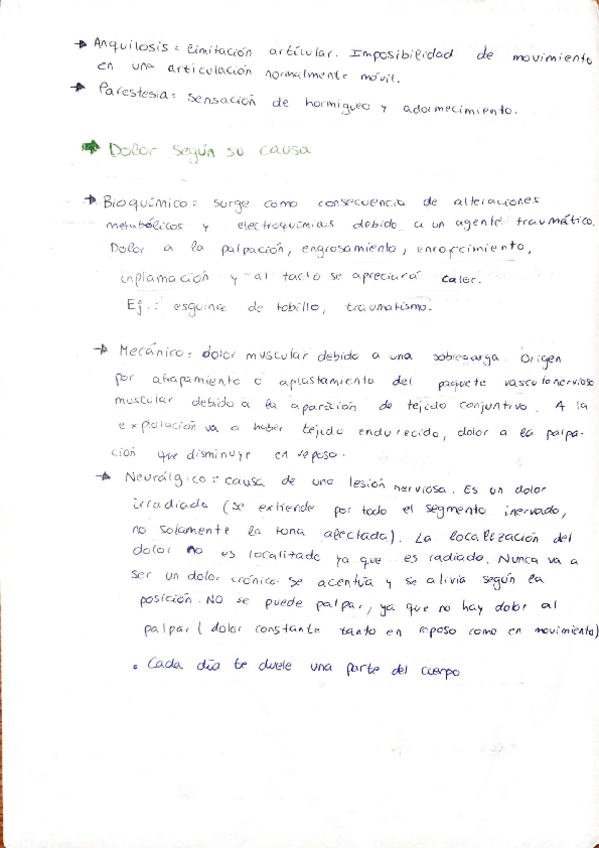 → Anquilosis: limitación artícular. Imposibilidad de movimiento
en una articulación normalmente móvil.
→ Parestesia: sensación de hormigueo y adormecimiento.
→ Dolor según su causa
→ Bioquímico: surge como consecuencia de alteraciones
metabólicos y electroquímias debido a un agente traumático.
Dolor a la palpación, engrosamiento, enrojecimiento,
inplamación y al tacto se apreciará calor.
Ej.: esguince de tobillo, traumatismo.
→ Mecánico: dolor muscular debido a una sobrecarga. Origen
por atrapamiento o aplastamiento del paquete vasculonervioso
muscular debido a la aparición de tejido conjuntivo. A la
exploración va a haber tejido endurecido, dolor a la palpa-
ción que disminuye en reposo.
→ Neurálgico: causa de una lesión nerviosa. Es un dolor
irradiado (se extiende por todo el segmento inervado,
no solamente la zona afectada). La localización del
dolor no es localizado ya que es radiado. Nunca va a
ser un dolor crónico. Se acentúa y se alivia según la
posición. NO se puede palpar, ya que no hay dolor al
palpar (dolor constante tanto en reposo como en movimiento)
• Cada día te duele una parte del cuerpo